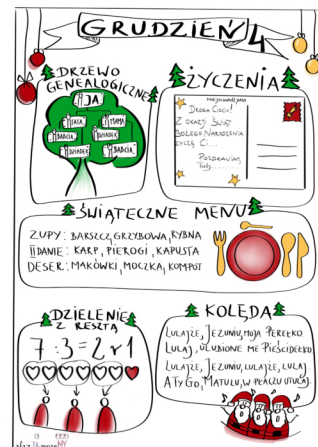 GRUDZIEŃ 4
DRZEWO
GENEALOGICZNE
JA
TATA
MAMA
BABCIA
DZIADEK
DZIADEK
BABCIA
ŻYCZENIA
MIEJSCOWOŚĆ, DATA
DROGA CIOCIU!
Z OKAZJI ŚWIĄT
BOŻEGO NARODZENIA
ŻYCZĘ CI...
POZDRAWIAM,
TWÓJ
ŚWIĄTECZNE MENU
ZUPY: BARSZCZ, GRZYBOWA, RYBNA
II DANIE: KARP, PIEROGI, KAPUSTA
DESER: MAKÓWKI, MOCZKA, KOMPOT
DZIELENIE
Z RESZTĄ
7:3=2 r 1
KOLĘDA
LULAJŻE, JEZUNIU, MOJA PEREŁKO
LULAJ, ULUBIONE ME PIEŚCIDEŁKO.
LULAJŻE, JEZUNIU, LULAJŻE, LULAJ,
A TY GO, MATULU, W PŁACZU UTULAJ.